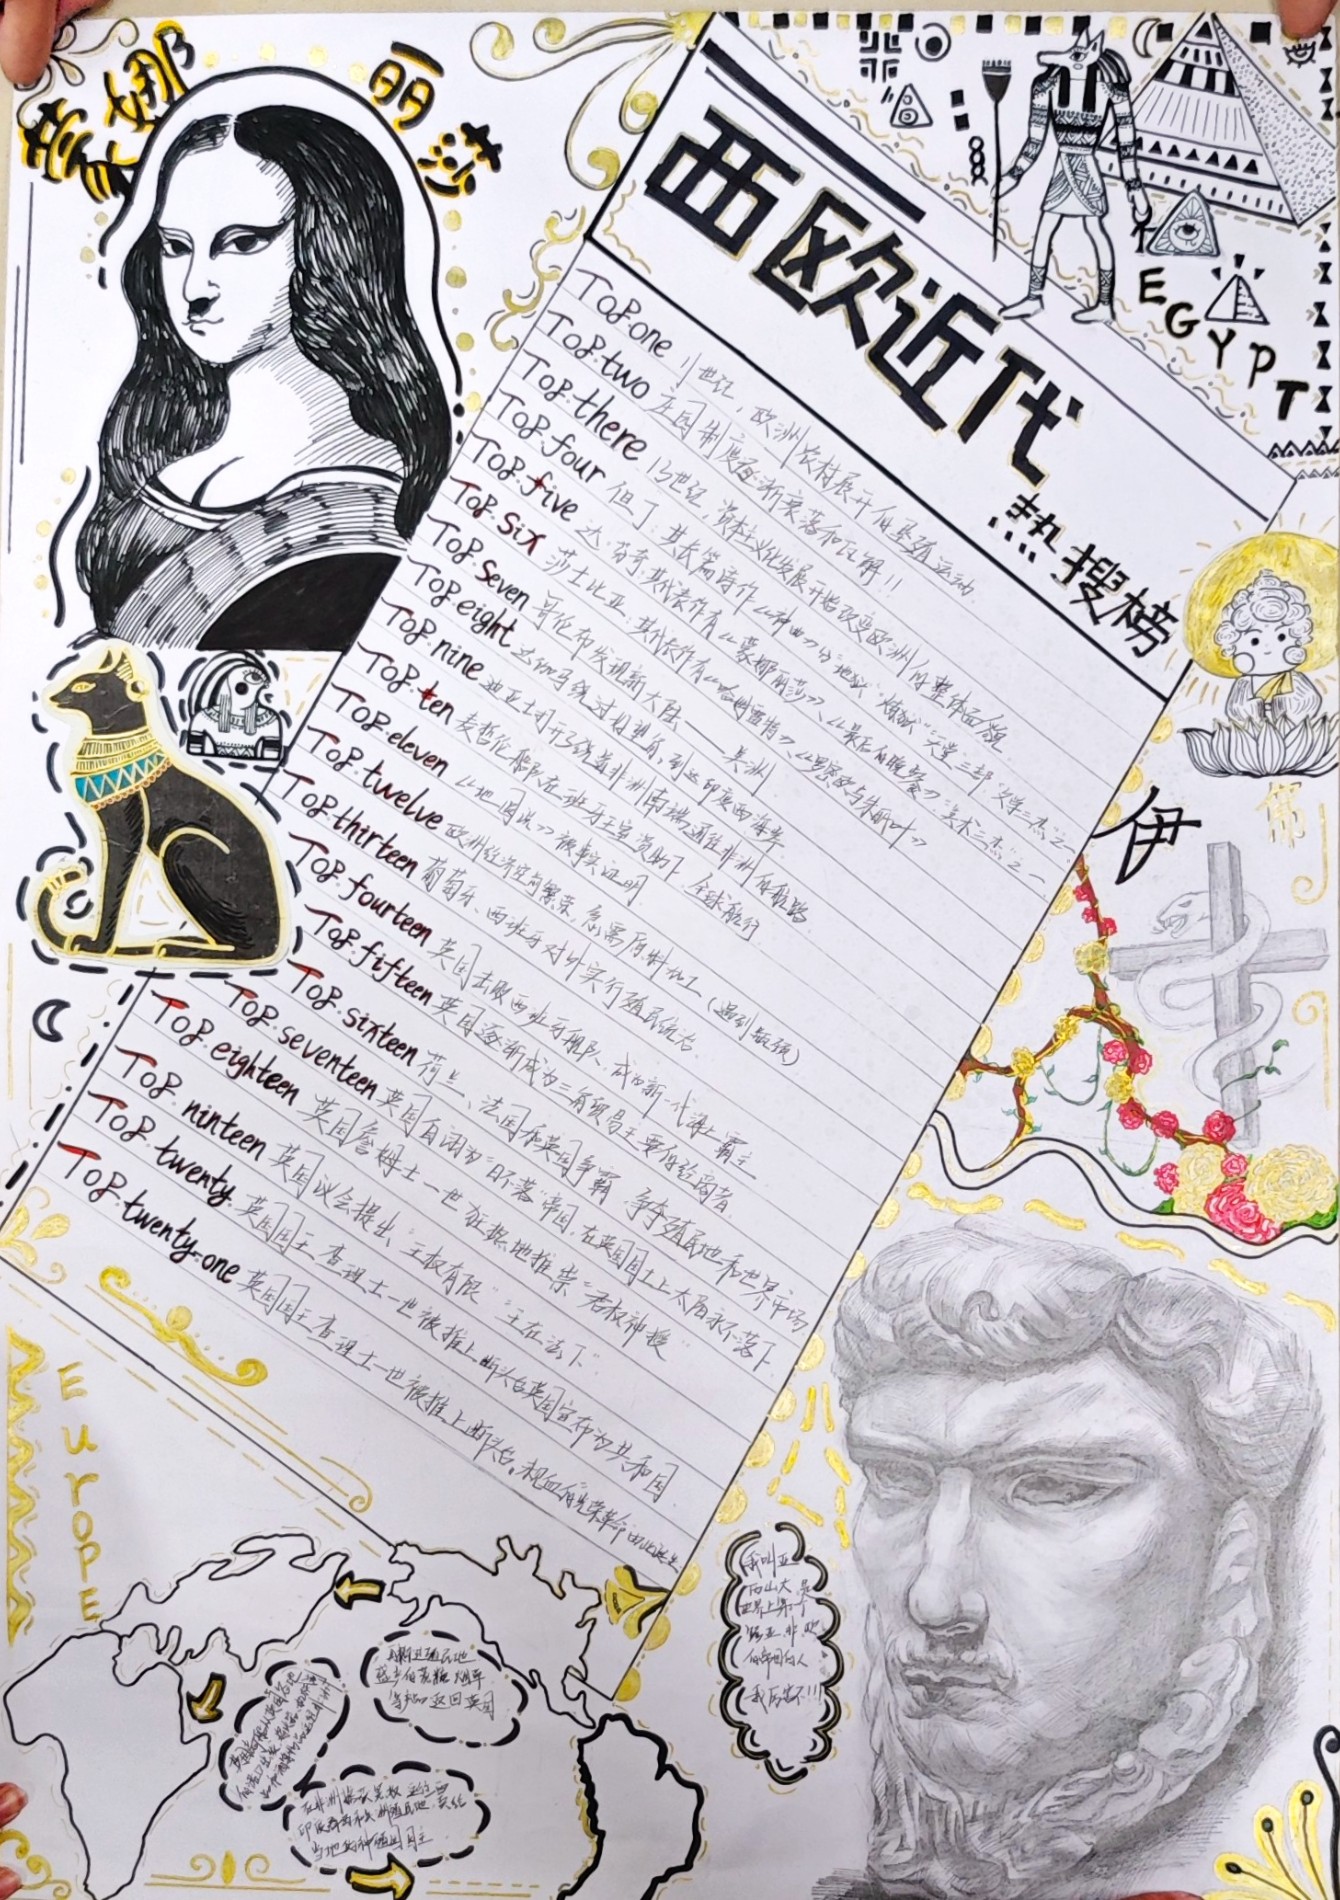 蒙娜丽莎
EGYPT
西欧近代
热搜榜
Top.one 11世纪,欧洲农村展开的垦殖运动.
Top.two 庄园制度逐渐衰落和瓦解!!
Top.there 13世纪,资本主义化发展开始改变欧洲的整体面貌
Top.four 但丁:其长篇诗作《神曲》分"地狱""炼狱""天堂"三部"文学三杰"之一
Top.five 达·芬奇:其代表作有《蒙娜丽莎》、《最后的晚餐》"美术三杰"之一
Top.six 莎士比亚:其代表作有《哈姆雷特》、《罗密欧与朱丽叶》
Top.seven 哥伦布发现新大陆——美洲
Top.eight 达伽马绕过好望角,到达印度西海岸
Top.nine 迪亚士打开了绕着非洲南端通往非洲的航路
Top.ten 麦哲伦船队在班牙王室资助下,全球航行
Top.eleven 《地圆说》被事实证明
Top.twelve 欧洲经济空前繁荣,急需原料加工(遇到瓶颈)
Top.thirteen 葡萄牙、西班牙对外实行殖民统治.
Top.fourteen 英国击败西班牙船队、成为新一代海上霸主
Top.fifteen 英国逐渐成为三角贸易主要的经商者.
Top.sixteen 荷兰、法国和英国争霸,争夺殖民地和世界市场
Top.seventeen 英国自诩为"日不落"帝国,在英国国土上太阳永不落下
Top.eighteen 英国詹姆士一世狂热地推崇"君权神授"
Top.ninteen 英国议会提出"王权有限""王在法下"
Top.twenty. 英国国王查理士一世被推上断头台英国宣布为共和国
Top.twenty.one 英国国王查理士一世被推上断头台。相血的"光荣革命"由此诞生
佛
伊
Europe
我叫亚
历山大,是
世界上第一个
跨亚、非、欧
的帝国的人
我厉害不!!!
返回英国
在非洲
当地的种植园园主